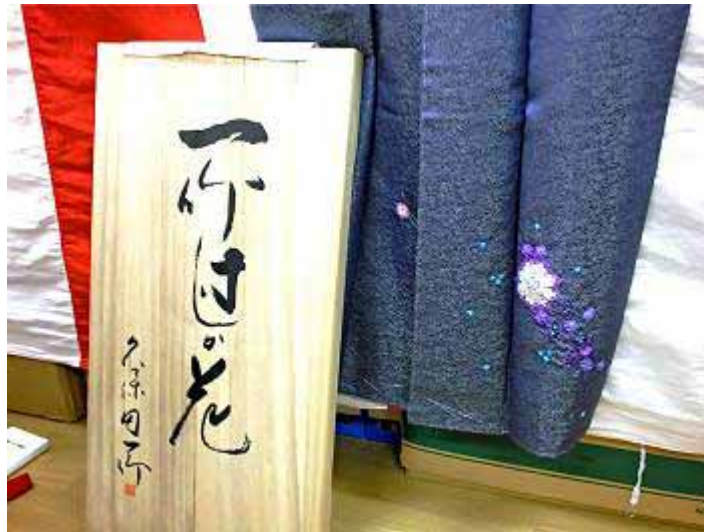 一竹辻が花
久保田一竹